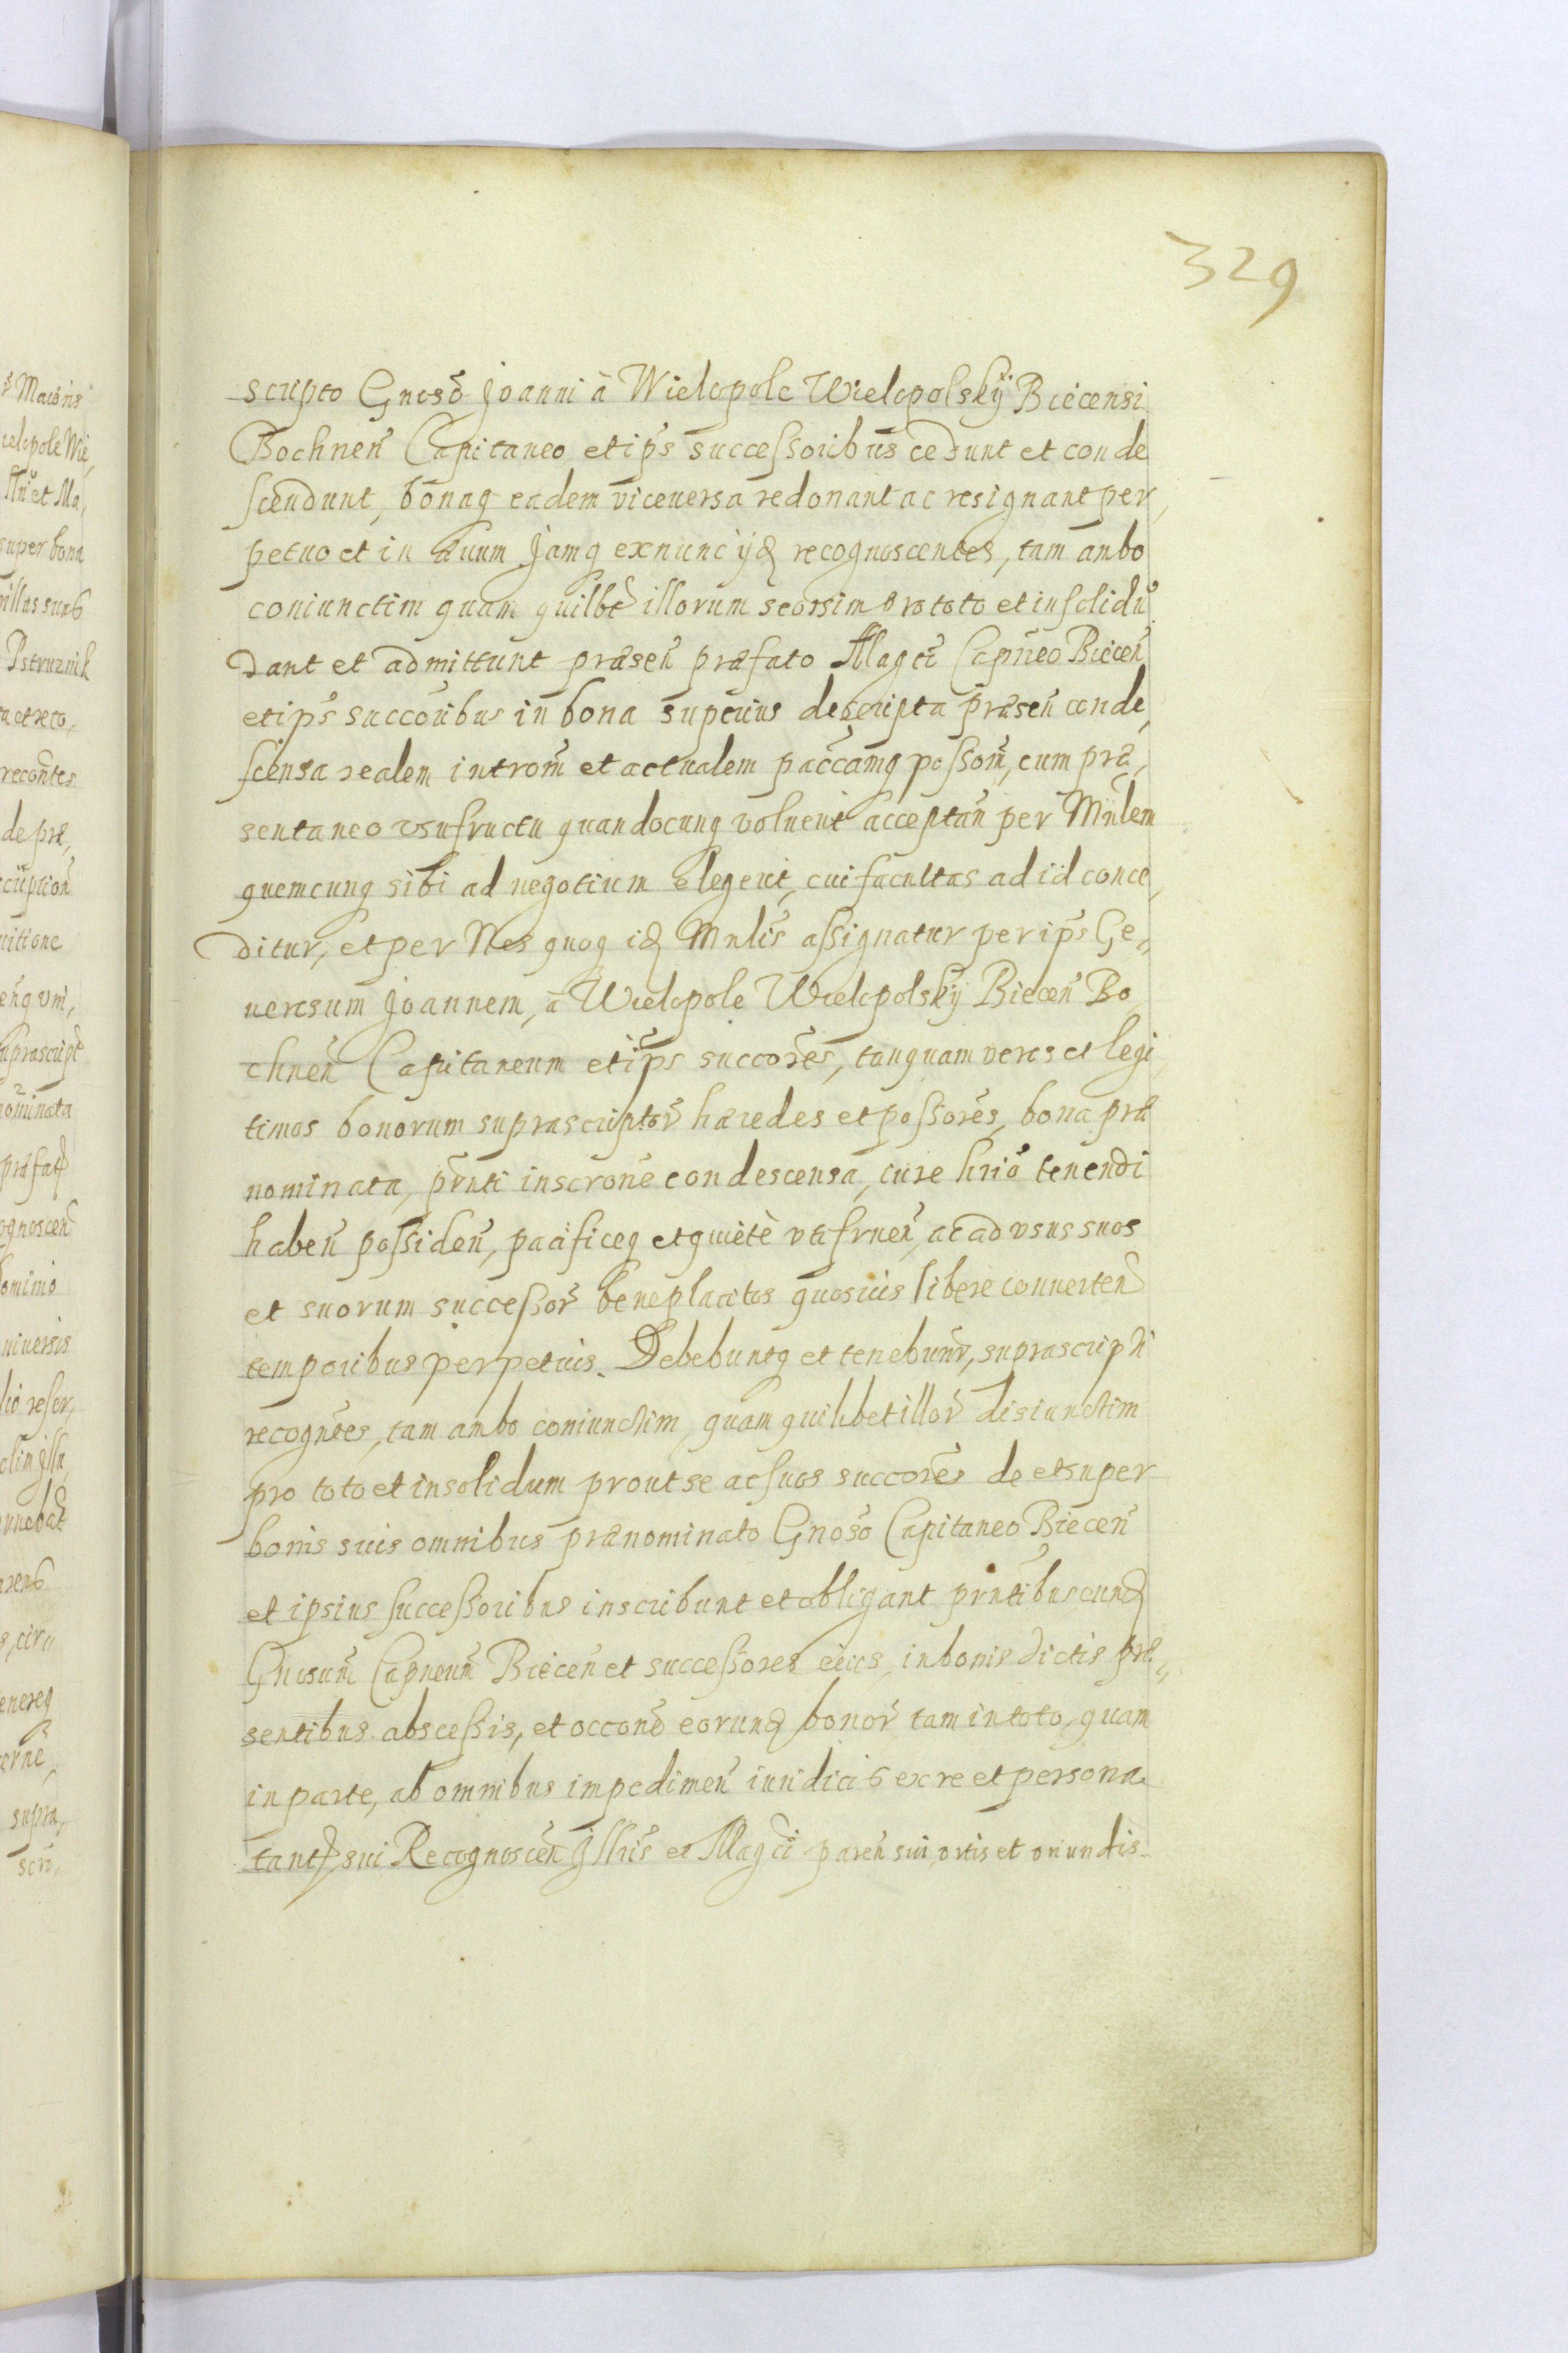 329
scripto Gnoso Joanni à Wielopole Wielopolskÿ Biecensi
Bochnen̄ Capitaneo et ips successoribus cedunt et conde
scendunt, bonaq eadem viceversa redonant ac resignant per,
petuo et in ævum Jamq exnunc ijd recognoscentes, tam ambo
coniunctim quam quilbt illorum seorsim pro toto et insolidū
dant et admittunt præsen̄ præfato Magco Capneo Biecen̄
et ips succoribus in bona superius descripta præsen̄ conde,
scensa realem introm̄ et actualem paccamq possom̄, cum præ,
sentaneo usufructu quandocunq voluerit acceptan̄ per Mnlem
quemcunq sibi ad negotium elegerit, cui facultas ad id conce,
ditur, et per Nos quoq id Mnlis assignatur per ips Ge,
nerosum Joannem, à Wielopole Wielopolskÿ Biecen̄ Bo
chnen̄ Capitaneum et ips succores, tanquam veros et legi,
timos bonorum suprascriptor̄ hæredes et possores, bona præ
nominata, pn̄ti inscrone condescensa, iure hrio tenendi
haben̄ possiden̄, pacificeq et quietè utifruen̄, ac ad usus suos
et suorum successor̄ beneplacitos quosvis libere converten̄
temporibus perpetuis. Debebuntq et tenebunr, suprascripti
recogntes, tam ambo coniunctim, quam quilibet illor̄ disiunctim
pro toto et insolidum prout se ac suos succores de et super
bonis suis omnibus prænominato Gnoso Capitaneo Biecen̄
et ipsius successoribus inscribunt et obligant pn̄tibus eund
Gnosum̄ Capneum̄ Biecen̄ et successores eius, in bonis dictis præ,
sentibus abscessis, et occone eorund bonor̄ tam in toto, quam
in parte, ab omnibus impedimen̄ iuridicis ex re et persona
tant sui Recognoscen̄ Jllris et Magci paren̄ sui, ortis et oriundis